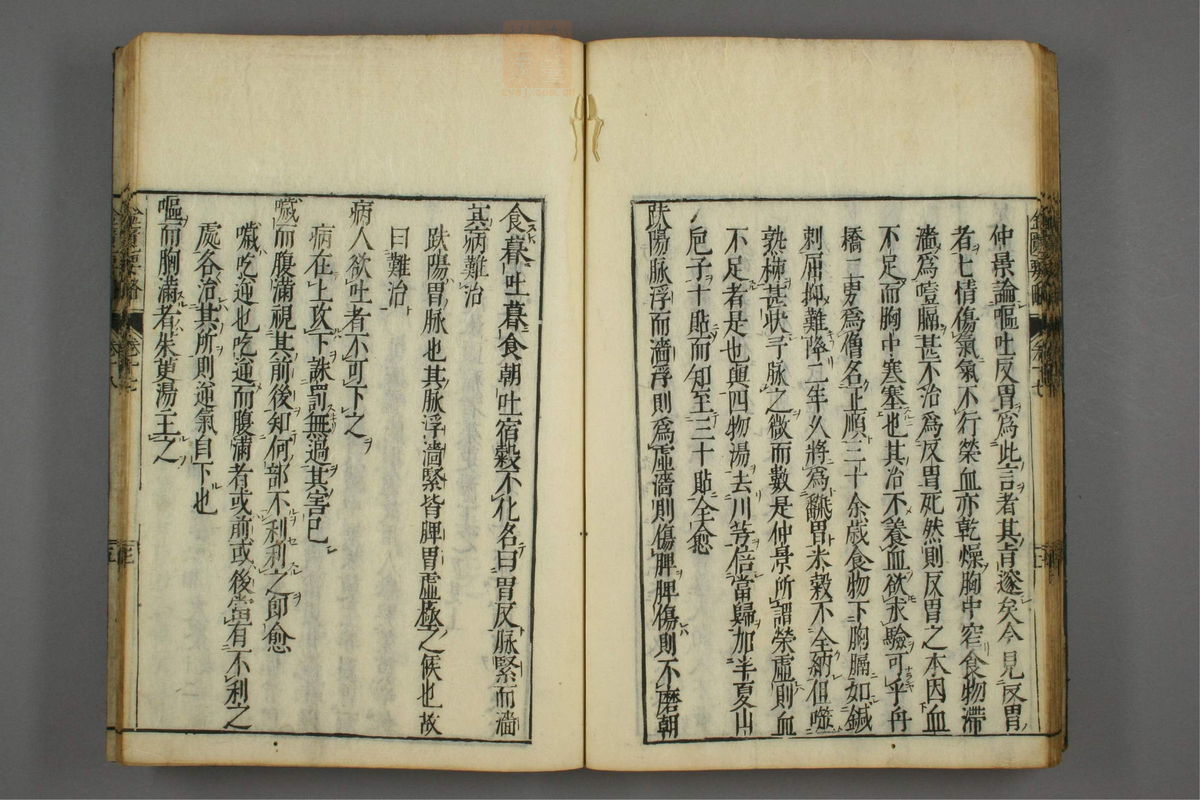 仲景論嘔吐反胃爲此言者其旨邃矣今見反胃
者七情傷氣氣不行榮血亦乾燥胸中窄食物滯
濇爲噎膈甚不治爲反胃死然則反胃之本因血
不足而胸中寒塞也其治不養血欲求驗可乎舟
橋二男爲僧名止順三十余歳食物下胸膈如鍼
刺屈抑難降二年久將爲翻胃米穀不全納但噬
熟柿甚状予脉之微而數是仲景所謂榮虛則血
不足者是也與四物湯去川芎倍當歸加半夏山
巵子十貼而知至三十貼全愈
趺陽脉浮而濇浮則爲虛濇則傷脾脾傷則不磨朝
食暮吐暮食朝吐宿穀不化名曰胃反脉緊而濇
其病難治
趺陽胃脉也其脉浮濇緊皆脾胃虛極之候也故
曰難治
病人欲吐者不可下之
病在上攻下誅罰無過其害已
噦而腹滿視其前後知何部不利利之卽愈
噦吃逆也吃逆而腹滿者或前或後當有不利之
處各治其所則逆氣自下也
嘔而胸滿者茱萸湯主之